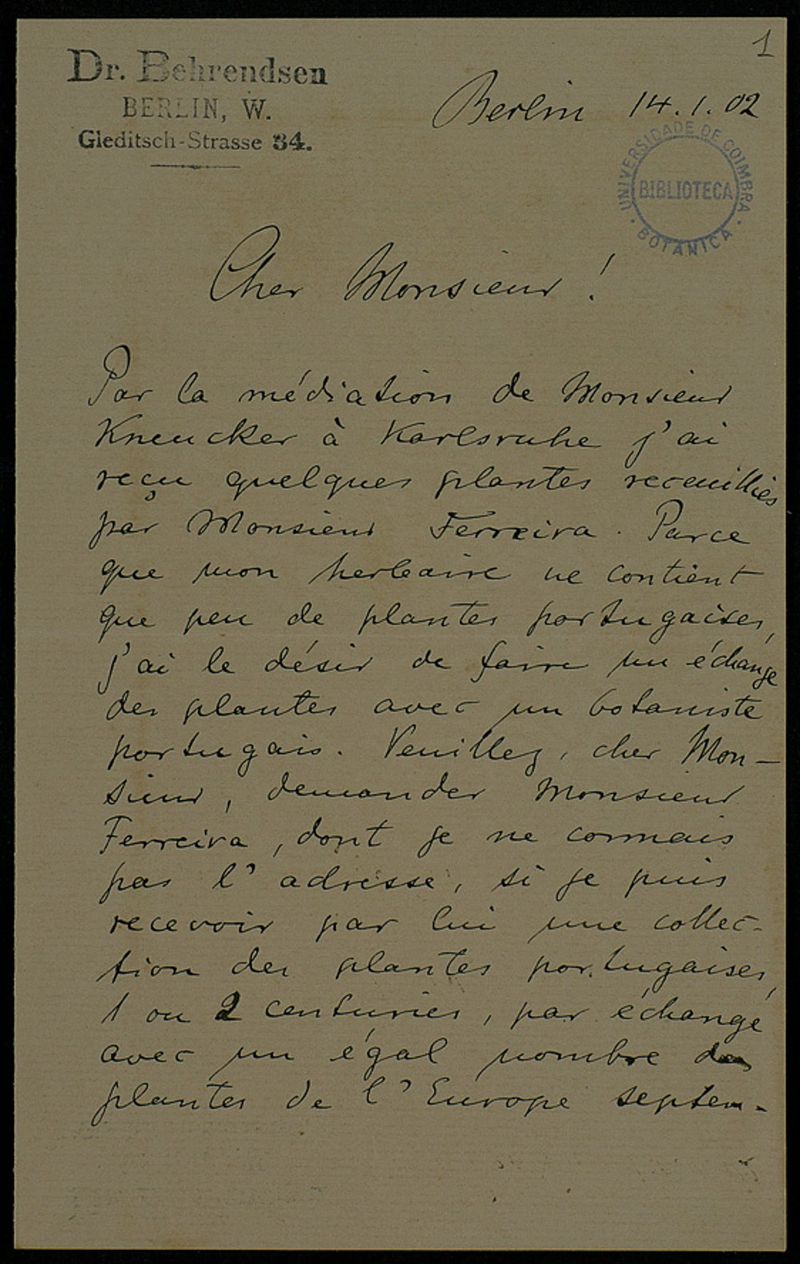 1
Dr. Behrendsen
BERLIN, W.
Gleditsch-Strasse 34.
Berlin 14.1.02
UNIVERSIDADE DE COIMBRA
BIBLIOTECA
BOTANICA
Cher Monsieur!
Par la médiation de Monsieur
Kneucker à Karlsruhe j'ai
reçu quelques plantes receuillies
par Monsieur Ferreira. Parce
que mon herbaire ne contient
que peu de plantes portugaises,
j'ai le désir de faire un échange
des plantes avec un botaniste
portugais. Veuillez, cher Mon-
sieur, demander Monsieur
Ferreira, dont je ne connais
pas l'adresse, si je puis
recevoir par lui une collec-
tion des plantes portugaises,
1 ou 2 centuries, par échange
avec un égal nombre des
plantes de l'Europe septen-